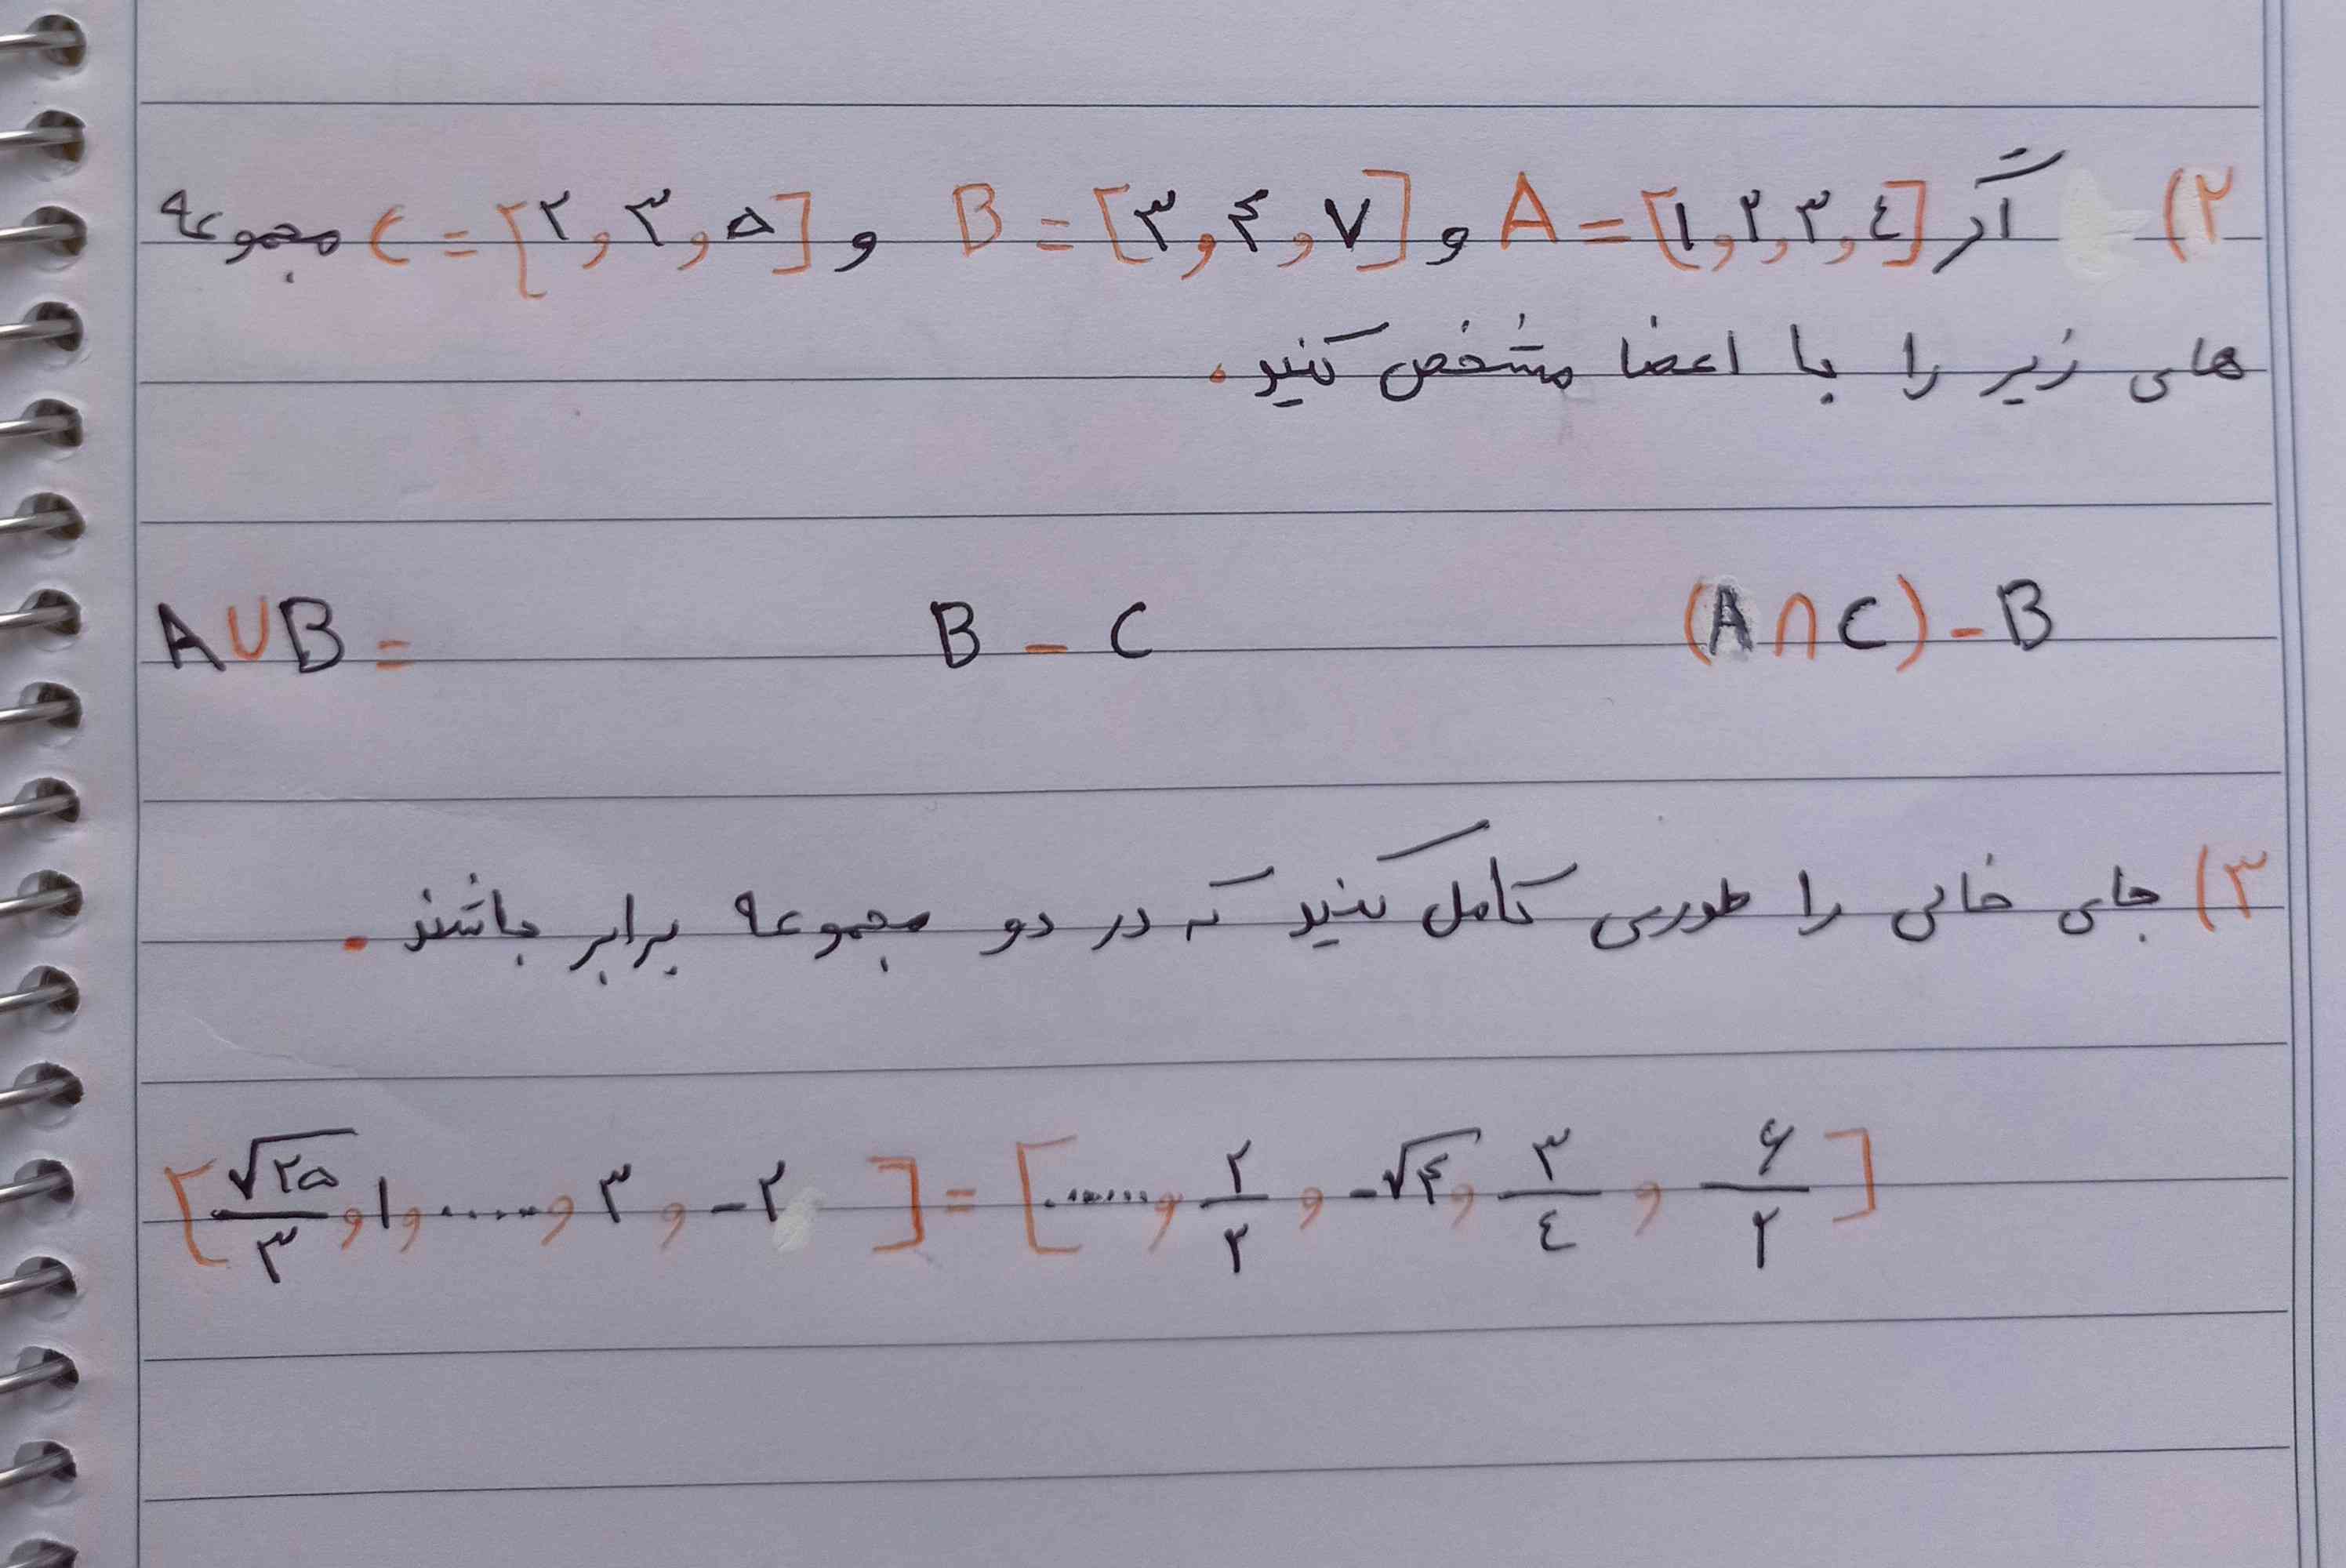 ۲) اگر A = [۱, ۲, ۳, ٤] و B = [۳, ۴, ۷] و C = [۲, ۳, ۵] مجموعه
های زیر را با اعضا مشخص کنید.
A∪B =    B − C    (A∩C) − B
۳) جای خالی را طوری کامل کنید که در دو مجموعه برابر باشند.
[√۲۵/۳ , ۱ , ..... , ۳ , −۲] = [...... , ۲/۲ , −√۴ , ۳/٤ , ۶/۲]